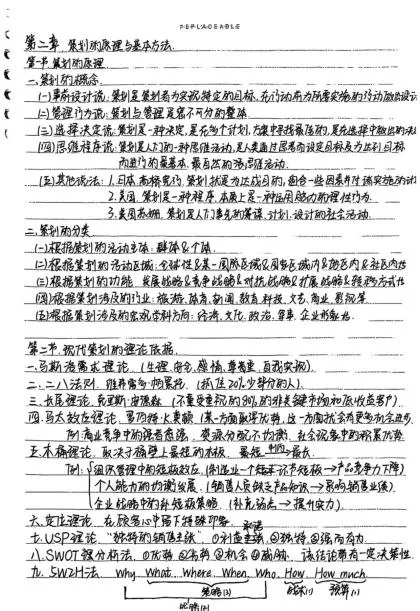 REPLACEABLE
第二章 策划的原理与基本方法
第一节 策划的原理
一、策划的概念
(一)事前设计说:策划是策划者为实现特定的目标,在行动前为所需实施的行动做出设计
(二)管理行为说:策划与管理是密不可分的整体
(三)选择决定说:策划是一种决定,是在多个计划、方案中寻找最佳的,是在选择中做出的决
(四)思维程序说:策划是人们的一种思维活动,是人类通过思考而设定目标及为达到目标
而进行的最基本、最自然的思维活动
(五)其他说法:1.日本 高桥宪行:策划就是为达成目的,组合一些因素并付诸实施的计
2.美国 策划是一种程序,本质上是一种运用脑力的理性行为
3.美国 苏珊 策划是人们事先的筹谋、计划、设计的社会活动
二、策划的分类
(一)根据策划的活动主体:群体&个体
(二)根据策划的活动区域:全球性&某一国际区域&国家区域内&地区内&社区内性
(三)根据策划的功能 发展战略&竞争战略&对抗战略&扩展战略&
(四)根据策划涉及的行业:旅游、体育、新闻、教育、科技、文艺、商业、影视等
(五)根据策划涉及的宏观学科方向:经济、文化、政治、军事、企业形象性
第二节 现代策划的理论依据
一、马斯洛需求理论 (生理、安全、感情、尊重、自我实现)
二、二八法则 维弗雷多·帕累托 (抓住20%少部分的人)
三、长尾理论 克里斯·安德森 (不重受重视的80%的非关键市场和低收益客户)
四、马太效应理论 罗伯特·火莫顿 (某一方面取得优势,这一方面就会有更多机会进步
例:商业竞争中的强者愈强、资源分配不均衡、社会现象中的积累优势
五、木桶理论 取决于桶壁上最短的木板 最短→最长
例:团队管理中的短板效应 (制造业一个短板→产品竞争力下降)
个人能力的均衡发展 (销售人员缺乏产品知识→影响销售业绩)
企业战略中的补短板策略 (补充弱点→提升实力)
六、定位理论 在顾客心中留下特殊印象
七、USP理论 "独特的销售主张" ①利益承诺 ②独特 ③强而有力
八、SWOT综合分析法 ①优势 ②劣势 ③机会 ④威胁 该结论带有一定决策性
九、5W2H法 Why What Where When Who How How much
策略(3) 战术(1) 预算(1)
战略(2)